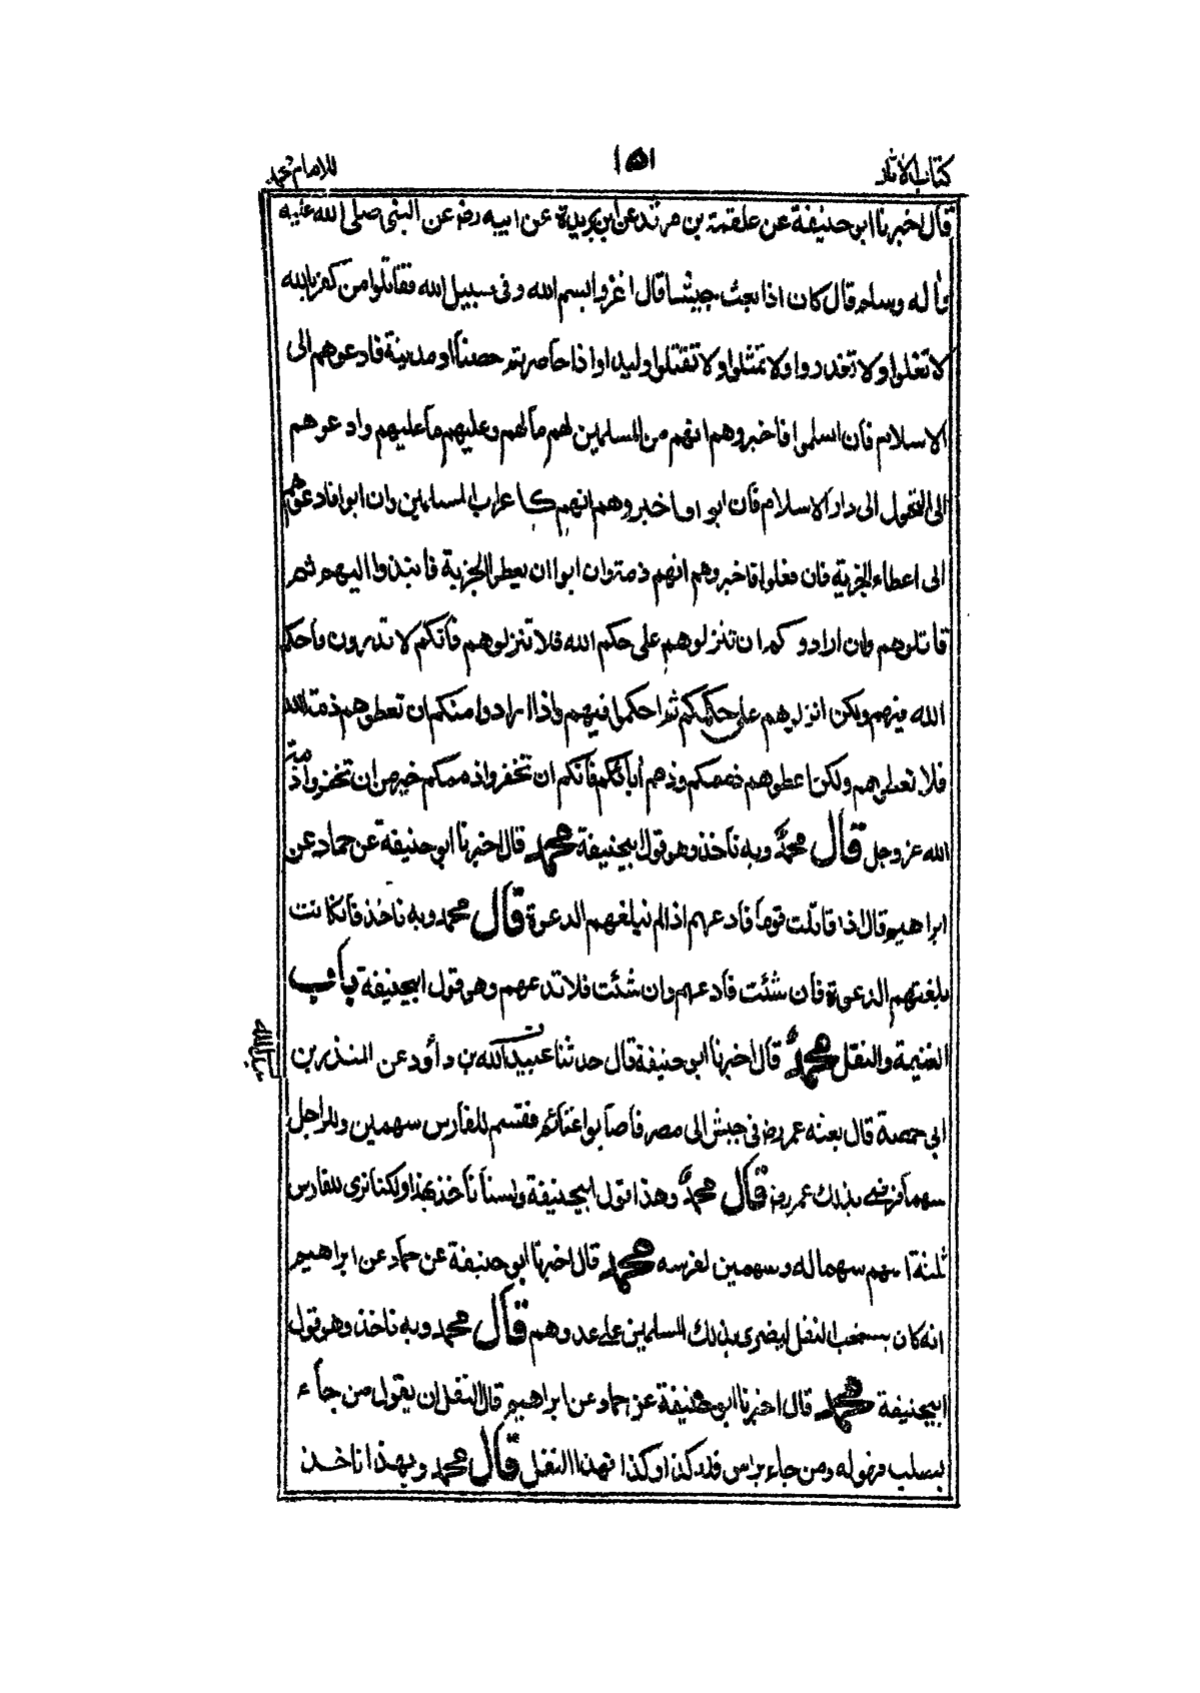 كتاب الاثار ١٥١ للامام محمد
قال اخبرنا ابو حنيفة عن علقمة بن مرثد عن ابن بريدة عن ابيه رضـ عن النبى صلى الله عليه
وآله وسلم قال كان اذا بعث جيشا قال اغزوا بسم الله وفى سبيل الله فقاتلوا من كفر بالله
لا تغلوا ولا تغدروا ولا تمثلوا ولا تقتلوا وليدا واذا حاصرتم حصنا او مدينة فادعوهم الى
الاسلام فان اسلموا فاخبروهم انهم من المسلمين لهم مالهم وعليهم ما عليهم وادعوهم
الى التحول الى دار الاسلام فان ابوا فاخبروهم انهم كاعراب المسلمين وان ابوا فادعوهم
الى اعطاء الجزية فان فعلوا فاخبروهم انهم ذمة وان ابوا ان يعطوا الجزية فانبذوا اليهم ثم
قاتلوهم وان ارادوكم ان تنزلوهم على حكم الله فلا تنزلوهم فانكم لا تدرون ما حكم
الله فيهم ولكن انزلوهم على حكمكم ثم احكموا فيهم واذا ارادوا منكم ان تعطوهم ذمة الله
فلا تعطوهم ولكن اعطوهم ذممكم وذمم أبائكم فانكم ان تخفروا ذممكم خير من ان تخفروا ذمة
الله عز وجل قال محمد وبه ناخذ وهو قول ابيحنيفة محمد قال اخبرنا ابو حنيفة عن حماد عن
ابراهيم قال اذا قاتلت قوما فادعهم اذا لم تبلغهم الدعوة قال محمد وبه ناخذ فان كانت
بلغتهم الدعوة فان شئت فادعهم وان شئت فلا تدعهم وهو قول ابيحنيفة باب
الغنيمة والنفل محمد قال اخبرنا ابو حنيفة قال حدثنا عبيد الله بن داؤد عن المنذر بن
ابى حمصة قال بعثه عمر رضـ فى جيش الى مصر فاصابوا غنائم فقسم للفارس سهمين وللراجل
سهما فرضى بذلك عمر رضـ قال محمد وهذا قول ابيحنيفة ولسنا ناخذ بهذا ولكنا نرى للفارس
ثلثة اسهم سهما له وسهمين لفرسه محمد قال اخبرنا ابو حنيفة عن حماد عن ابراهيم
انه كان يستحب النفل ليضرى بذلك المسلمين على عدوهم قال محمد وبه ناخذ وهو قول
ابيحنيفة محمد قال اخبرنا ابو حنيفة عن حماد عن ابراهيم قال النفل ان يقول من جاء
بسلب فهو له ومن جاء براس فله كذا وكذا فهذا النفل قال محمد وبهذا ناخذ